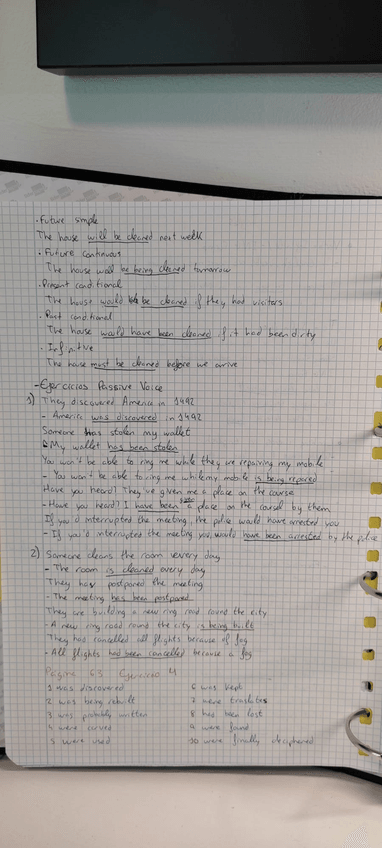 · Future simple
The house will be cleaned next week
· Future continuous
The house will be being cleaned tomorrow
· Present conditional
The house would be cleaned if they had visitors
· Past conditional
The house would have been cleaned if it had been dirty
· Infinitive
The house must be cleaned before we arrive
- Ejercicios Passive Voice
1) They discovered America in 1492
- America was discovered in 1492
Someone has stolen my wallet
- My wallet has been stolen
You won't be able to ring me while they are repairing my mobile
- You won't be able to ring me while my mobile is being repaired
Have you heard? They've given me a place on the course
- Have you heard? I have been given a place on the course by them
If you'd interrupted the meeting, the police would have arrested you
- If you'd interrupted the meeting you would have been arrested by the police
2) Someone cleans the room every day
- The room is cleaned every day
They have postponed the meeting
- The meeting has been postponed
They are building a new ring road round the city
- A new ring road round the city is being built
They had cancelled all flights because of fog
- All flights had been cancelled because a fog
Página 63 Ejercicio 4
1 was discovered
2 was being rebuilt
3 was probably written
4 were carved
5 were used
6 was kept
7 were traslates
8 had been lost
9 were found
10 were finally deciphered